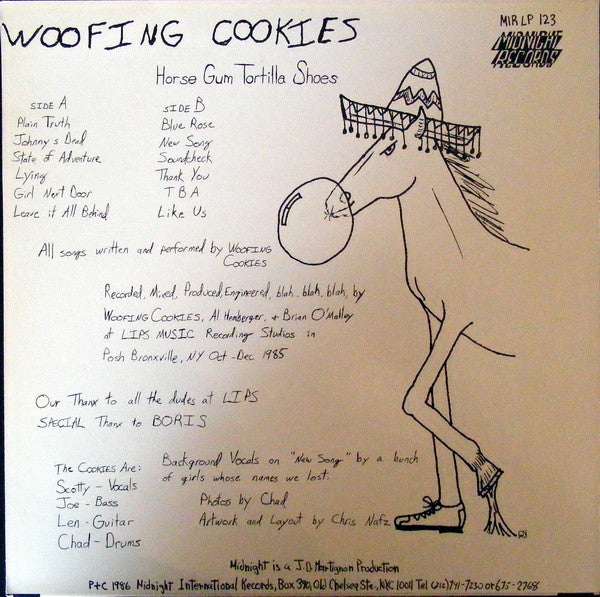 WOOFING COOKIES
MIRLP 123
MIDNIGHT
RECORDS
Horse Gum Tortilla Shoes
SIDE A
Plain Truth
Johnny's Dead
State of Adventure
Lying
Girl Next Door
Leave it All Behind
SIDE B
Blue Rose
New Song
Soundcheck
Thank You
T B A
Like Us
All songs written and performed by WOOFING
COOKIES
Recorded, Mixed, Produced, Engineered, blah, blah, blah, by
WOOFING COOKIES, Al Hemberger, + Brian O'Malley
at LIPS MUSIC Recording Studios in
Posh Bronxville, NY Oct-Dec 1985
Our Thanx to all the dudes at LIPS
SPECIAL Thanx to BORIS
The COOKIES Are:
Scotty - Vocals
Joe - Bass
Len - Guitar
Chad - Drums
Background Vocals on "New Song" by a bunch
of girls whose names we lost.
Photos by Chad
Artwork and Layout by Chris Nafz
Midnight is a J.D. Martignon Production
P+C 1986 Midnight International Records, Box 390, Old Chelsea Sta., NYC 10011 Tel (212) 741-7230 or 675-2768